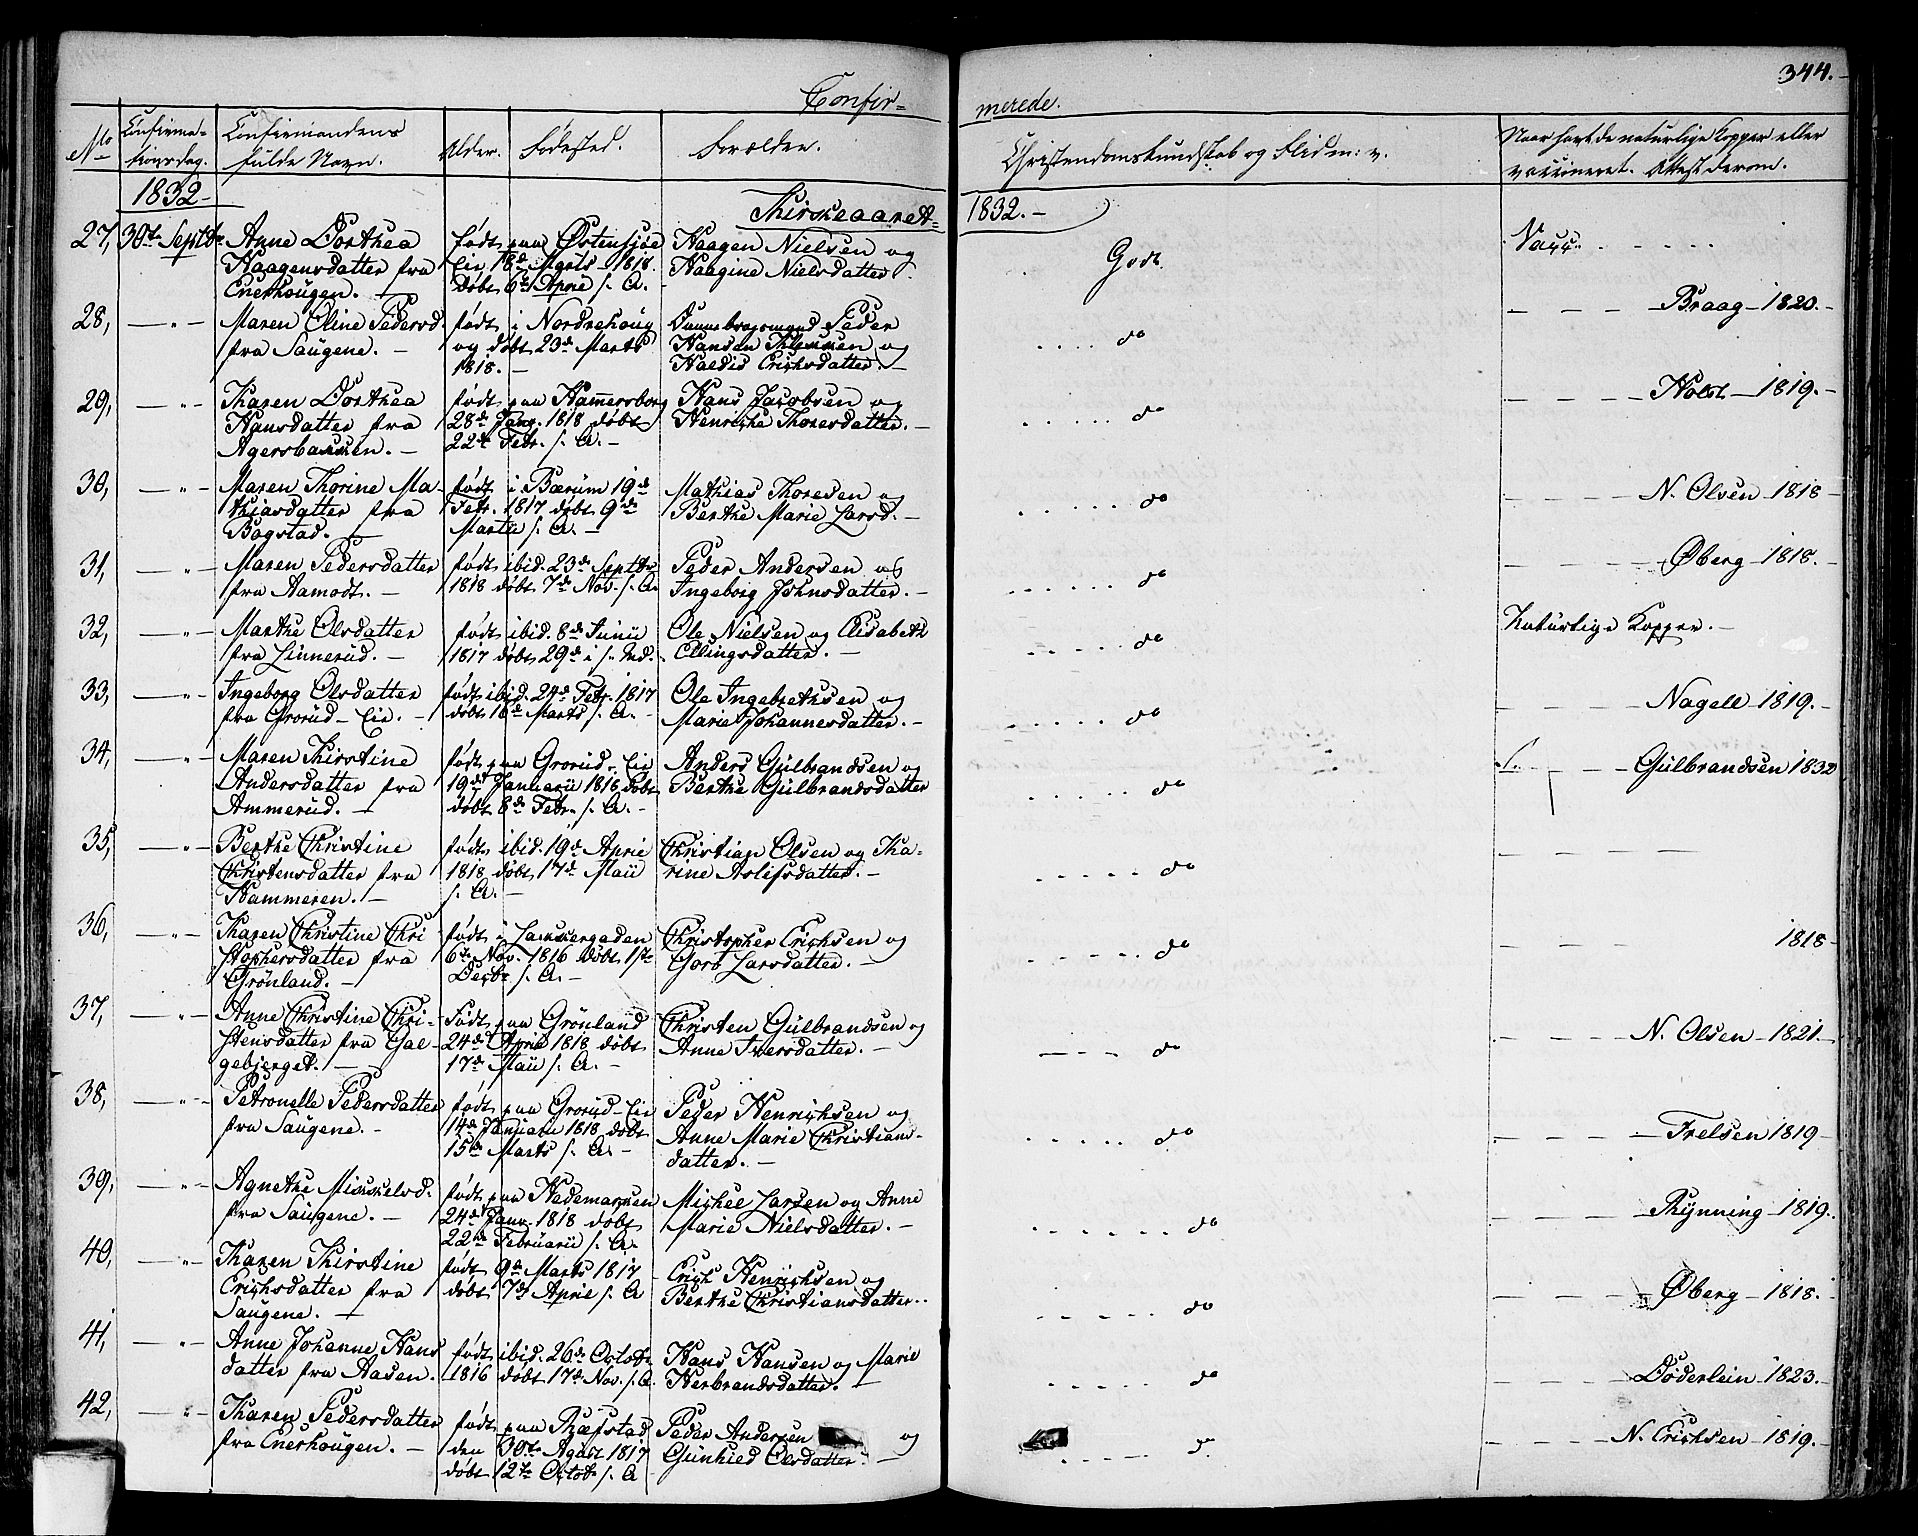 344.
Confir=
merede.
No
Confirma=
tionsdag.
Confirmandens
fulde Navn.
Alder.
Fødested.
Forældre.
Christendomskundskab og Flid m: v.
Naar havt de naturlige Kopper eller
vaccineret. Attest derom.
1832
Kirkeaaret
1832.
27, 30te Septbr Anne Dorthea
Haagensdatter fra
Enerhougen.
født paa Østensjøe
Eie 18de Marts 1818.
døbt 6te April s. A.
Haagen Nielsen og
Haagine Nielsdatter
Godt
Vacc.
Braag 1820.
28, Maren Eline Pedersd.
fra Saugene.
født i Nordrehoug
og døbt 23de Marts
1818.
Dannebrogsmand Peder
Hansen og
Haldis Erichsdatter.
do
Holst 1819.
29, Karen Dorthea
Hansdatter fra
Agersbakken.
født paa Hammersborg
28de Janr. 1818 døbt
22de Febr. s. A.
Hans Jacobsen og
Henriche Thoresdatter.
do
30, Maren Thorine Ma-
thiasdatter fra
Bogstad.
født i Bærum 19de
Febr. 1817 døbt 9de
Martii s. A.
Mathias Thoresen og
Berthe Marie Larsd.
do
N. Olsen 1818
31, Maren Pedersdatter
fra Aamodt.
født ibid. 23de Septbr
1818 døbt 7de Nov. s. A.
Peder Andersen og
Ingeborg Johnsdatter.
do
Øberg 1818.
32, Marthe Olsdatter
fra Linnerud.
født ibid. 8de Junii
1817 døbt 29de i s. Md.
Ole Nielsen og Elisabeth
Ellingsdatter.
do
Naturlige Kopper.
33, Ingeborg Olsdatter
fra Grorud-Eie.
født ibid. 24de Febr. 1817
døbt 16de Marts s. A.
Ole Ingebrethsen og
Marie Johannesdatter.
do
Nagell 1819.
34, Maren Kirstine
Andersdatter fra
Ammerud.
født paa Grorud-Eie
19de Januarii 1816 døbt
døbt 8de Febr. s. A.
Anders Gulbrandsen og
Berthe Gulbrandsdatter
do
Gulbrandsen 1832
35, Berthe Christine
Christensdatter fra
Hammeren.
født ibid. 19de April
1818 døbt 17de Maii
s. A.
Christian Olsen og Ka-
rine Aslefsdatter.
do
36, Karen Christine Chri
stophersdatter fra
Grønland.
født i Lakkergaden
6te Nov. 1816 døbt 1ste
Decbr s. A.
Christopher Erichsen og
Goro Larsdatter.
do
1818
37, Anne Christine Chri-
stensdatter fra Gal-
gebjerget.
Født paa Grønland
24de April 1818 døbt
17de Maii s. A.
Christen Gulbrandsen og
Anne Iversdatter.
do
N. Olsen 1821.
38, Petronelle Pedersdatter
fra Saugene.
født paa Grorud-Eie
14de Januarii 1818 døbt
15de Marts s. A.
Peder Henrichsen og
Anne Marie Christians-
datter.
do
Frelsen 1819
39, Agnethe Mickelsd.
fra Saugene.
født paa Hedemarken
24de Janr. 1818 døbt
22de Februarii s. A.
Michel Larsen og Anne
Marie Nielsdatter.
do
Rynning 1819.
40, Karen Kirstine
Erichsdatter fra
Saugene.
født 9de Marts 1817
døbt 7de April s. A
Erich Henrichsen og
Berthe Christiansdatter.
do
Øberg 1818.
41, Anne Johanne Hans
datter fra Aasen.
født ibid. 26de Octobr
1816 døbt 17de Nov. s. A.
Hans Hansen og Marie
Herbrandsdatter.
do
Døderlein 1823.
42, Karen Pedersdatter
fra Enerhougen.
født paa Refstad
den 30te Agust 1817
døbt 12te Octobr s. A
Peder Andersen og
Gunhild Olsdatter
do
N. Erichsen 1819.